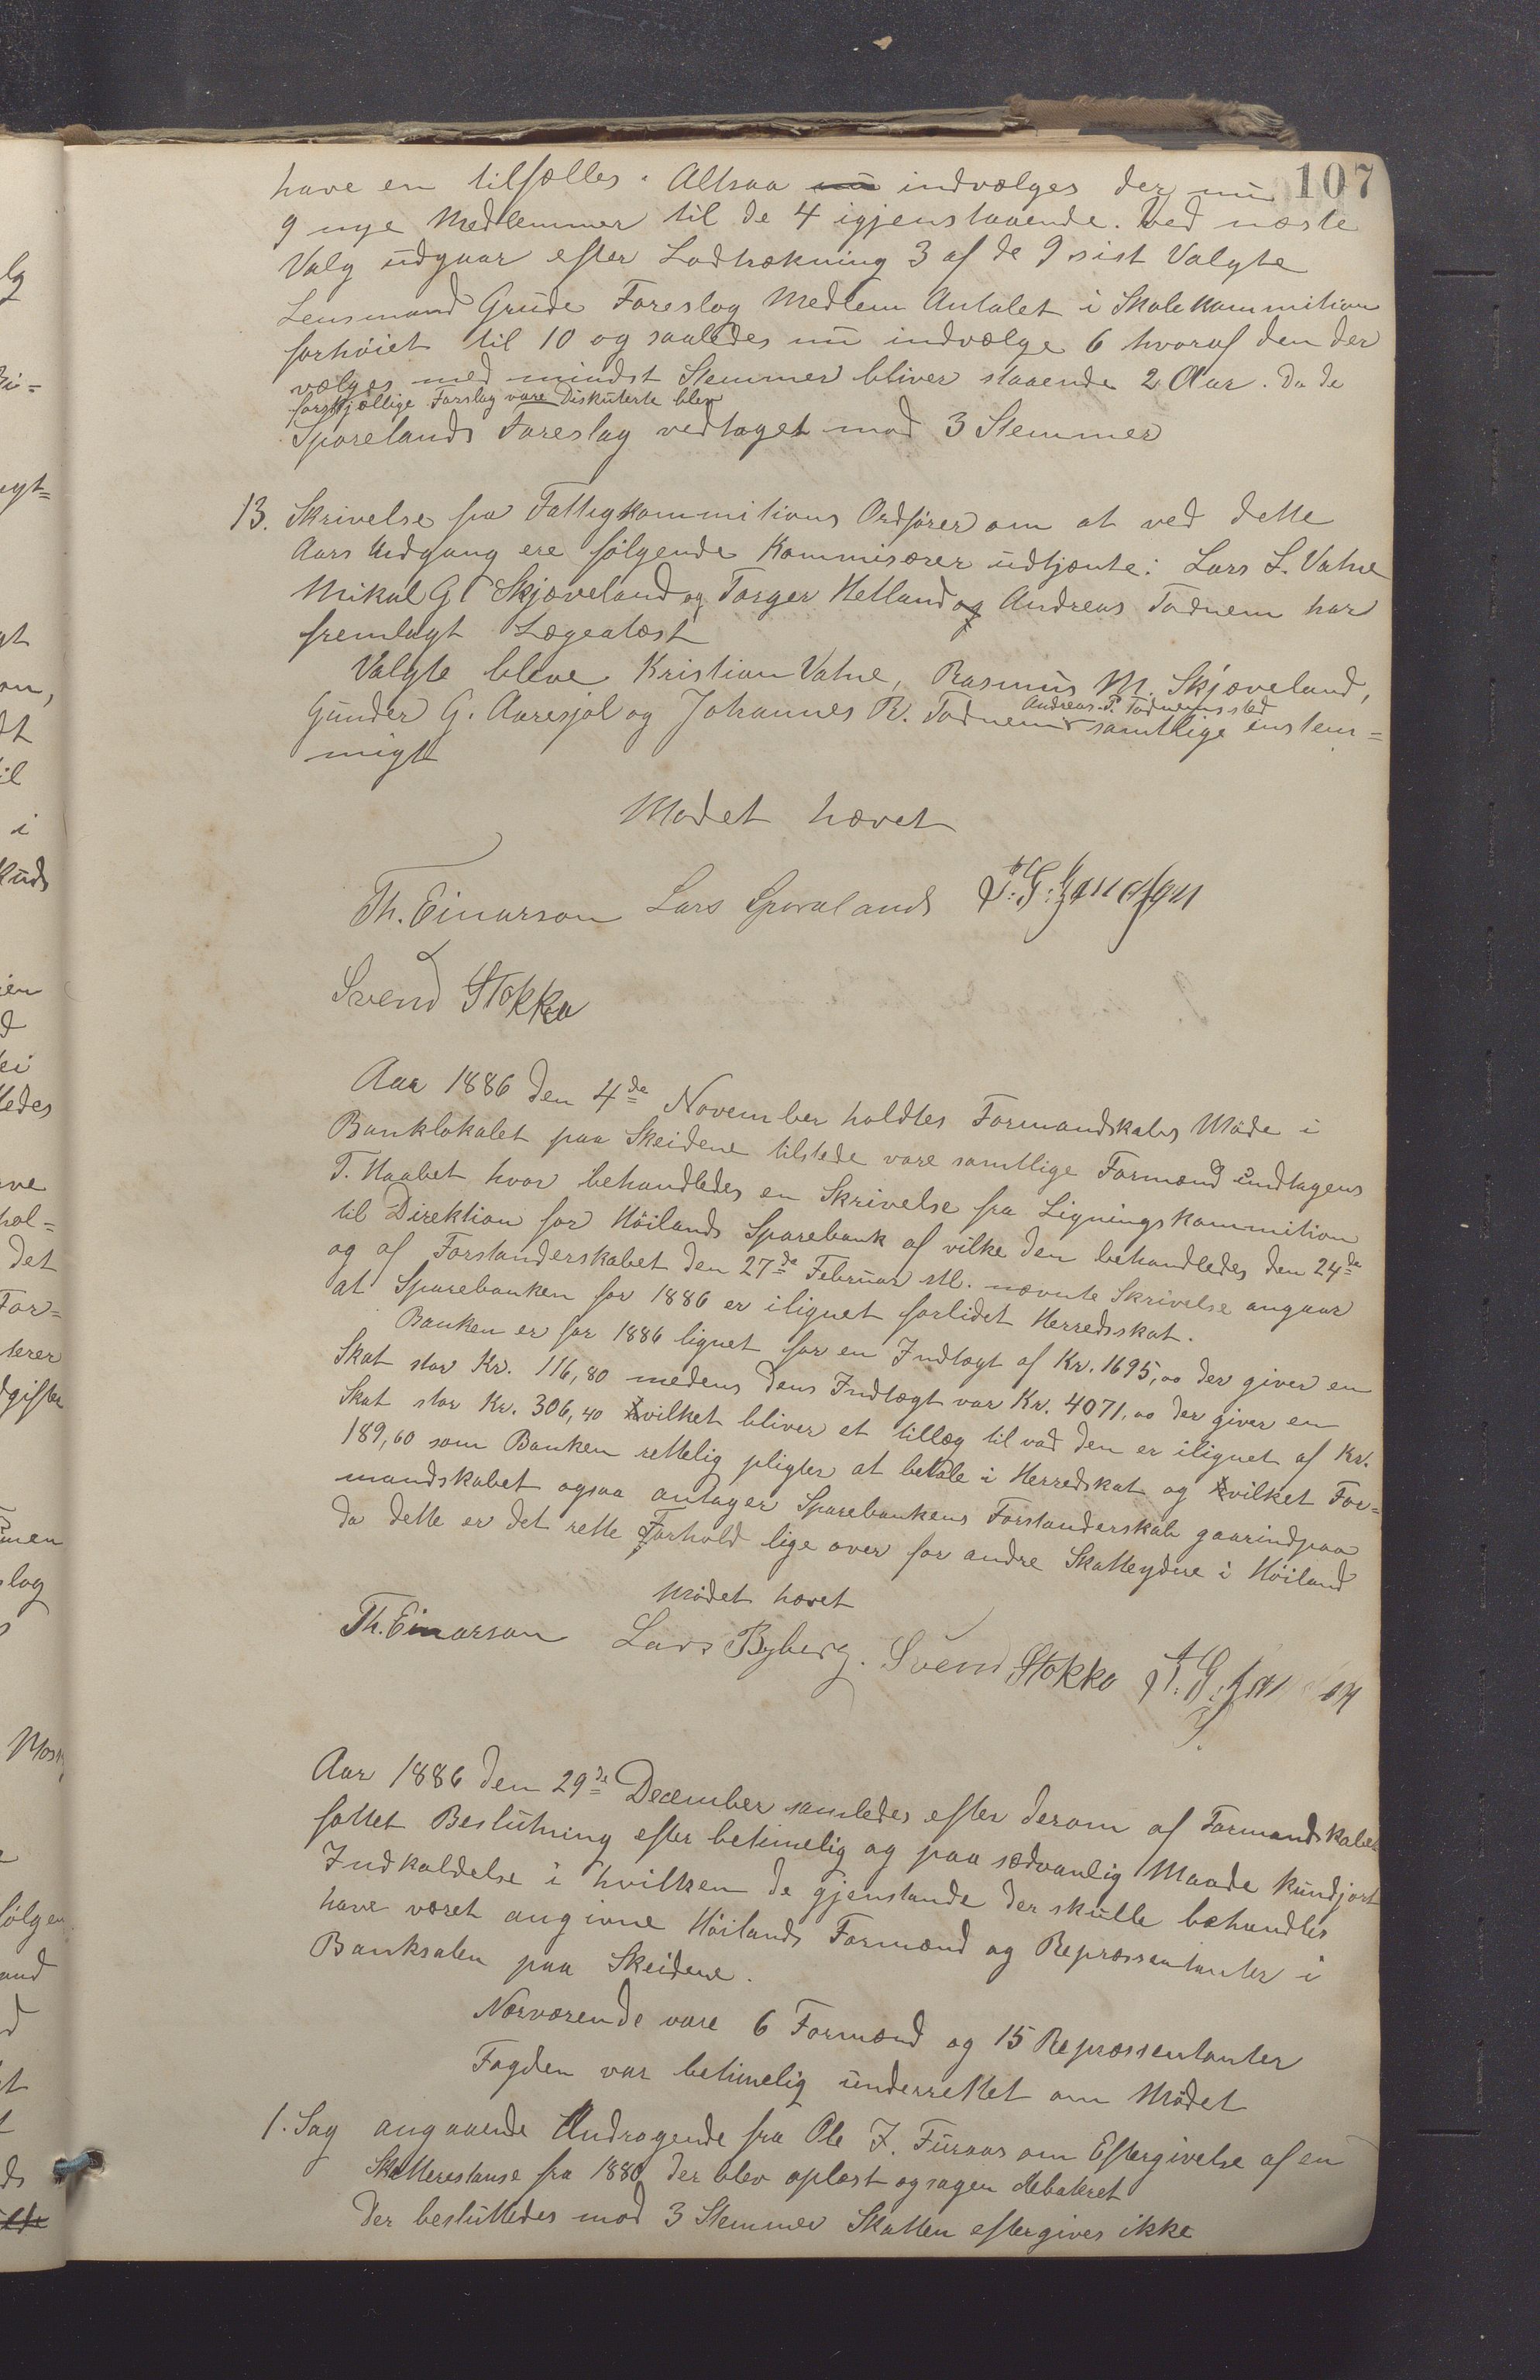 107
have en tilfælles. Altsaa nu indvælges der nu
9 nye Medlemmer til de 4 igjenstaaende. Ved næste
Valg udgaar efter Lodtrækning 3 af de 9 sist Valgte
Lensmand Grude Foreslog Medlem Antalet i Skolekommition
forhöiet til 10 og saaledes nu indvælge 6 hvoraf den der
vælges med mindst Stemmer bliver staaende 2 Aar. Da de
forskjællige Forslag vare Diskuterte blev
Sporelands Foreslag vedtaget mod 3 Stemmer
13. Skrivelse fra Fattigkommitions Ordförer om at ved dette
Aars Udgang ere fölgende Kommisærer udtjente: Lars L. Vatne
Mikal G Skjæveland og Torger Hetland og Andreas Todnem har
fremlagt Lægeatæst
Valgte bleve Kristian Vatne, Rasmus M. Skjæveland,
Andreas P. Todnems sted
Gunder G. Aaresjøl og Johannes R. Todnem samtlige enstem=
migt
Mødet hævet
Th. Einarson Lars Sporaland T. G.
Svend Stokka
Aar 1886 den 4de November holdtes Formandskabs Möde i
Banklokalet paa Skeidene tilstede vare samtlige Formænd undtagens
T. Haabet hvor behandledes en Skrivelse fra Ligningskommition
til Direktion for Höilands Sparebank af vilke den behandledes den 24de
og af Forstanderskabet den 27de Februar stl. nævnte Skrivelse angaar
at Sparebanken for 1886 er ilignet forlidet Herredsskat.
Banken er for 1886 lignet for en Indtægt af Kr. 1695,00 der giver en
Skat stor Kr. 116,80 medens dens Indtægt var Kr. 4071,00 der giver en
Skat stor Kr. 306,40 hvilket bliver et tillæg til vad den er ilignet af Kr.
189,60 som Banken rettelig pligter at betale i Herredskat og hvilket For=
mandskabet ogsaa antager Sparebankens Forstanderskab gaarindpaa
da dette er det rette Forhold lige over for andre Skatteydere i Höiland
Mödet hævet
Th. Einarson Lars Byberg. Svend Stokka T. G.
Aar 1886 den 29de December samledes efter derom af Formandskabet
fattet Beslutning efter betimelig og paa sædvanlig Maade kundjort
Indkaldelse i hvilken de gjenstande der skulle behandles
have været angivne Höilands Formænd og Repræssentanter i
Banksalen paa Skeidene.
Nærværende vare 6 Formænd og 15 Repræssentanter
Fogden var betimelig underrettet om Mödet
1. Sag angaaende Andragende fra Ole J. Furaas om Eftergivelse af en
Skatterestanse fra 1880 der blev oplæst og sagen debateret
Der besluttedes mod 3 Stemmer Skatten eftergives ikke